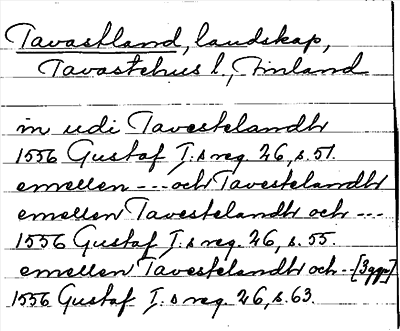 Tavastland, landskap,
Tavastehus l., Finland
in udi Tavestelandh
1556 Gustaf I:s reg. 26, s. 51.
emellen --- och Tavestelandh
emellen Tavestelandh och ---
1556 Gustaf I:s reg. 26, s. 55.
emellen Tavestelandh och -- [3 ggr]
1556 Gustaf I:s reg. 26, s. 63.